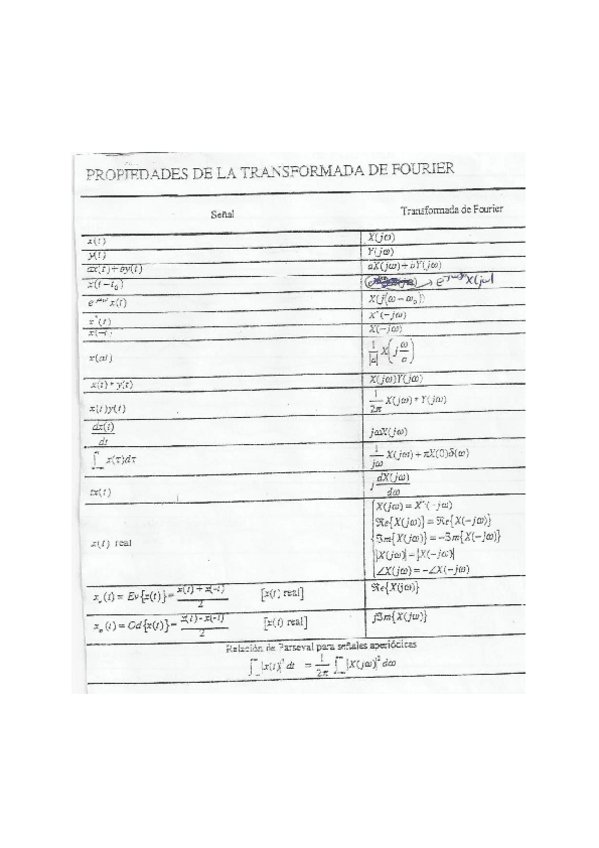 PROPIEDADES DE LA TRANSFORMADA DE FOURIER
Señal Transformada de Fourier
x(t) X(jω)
y(t) Y(jω)
ax(t) + by(t) aX(jω) + bY(jω)
x(t − t₀) → e^-jωt₀ X(jω)
e^jω₀t x(t) X(j(ω − ω₀))
x*(t) X*(−jω)
x(−t) X(−jω)
x(at) 1/|a| X(j ω/a)
x(t) * y(t) X(jω)Y(jω)
x(t)y(t) 1/2π X(jω) * Y(jω)
dx(t)/dt jωX(jω)
∫ x(τ)dτ 1/jω X(jω) + πX(0)δ(ω)
tx(t) j dX(jω)/dω
X(jω) = X*(−jω)
ℜe{X(jω)} = ℜe{X(−jω)}
x(t) real ℑm{X(jω)} = −ℑm{X(−jω)}
|X(jω)| = |X(−jω)|
∠X(jω) = −∠X(−jω)
xₑ(t) = Ev{x(t)} = x(t) + x(-t)/2 [x(t) real] ℜe{X(jω)}
xₒ(t) = Od{x(t)} = x(t) - x(-t)/2 [x(t) real] jℑm{X(jω)}
Relación de Parseval para señales aperiódicas
∫|x(t)|² dt = 1/2π ∫|X(jω)|² dω